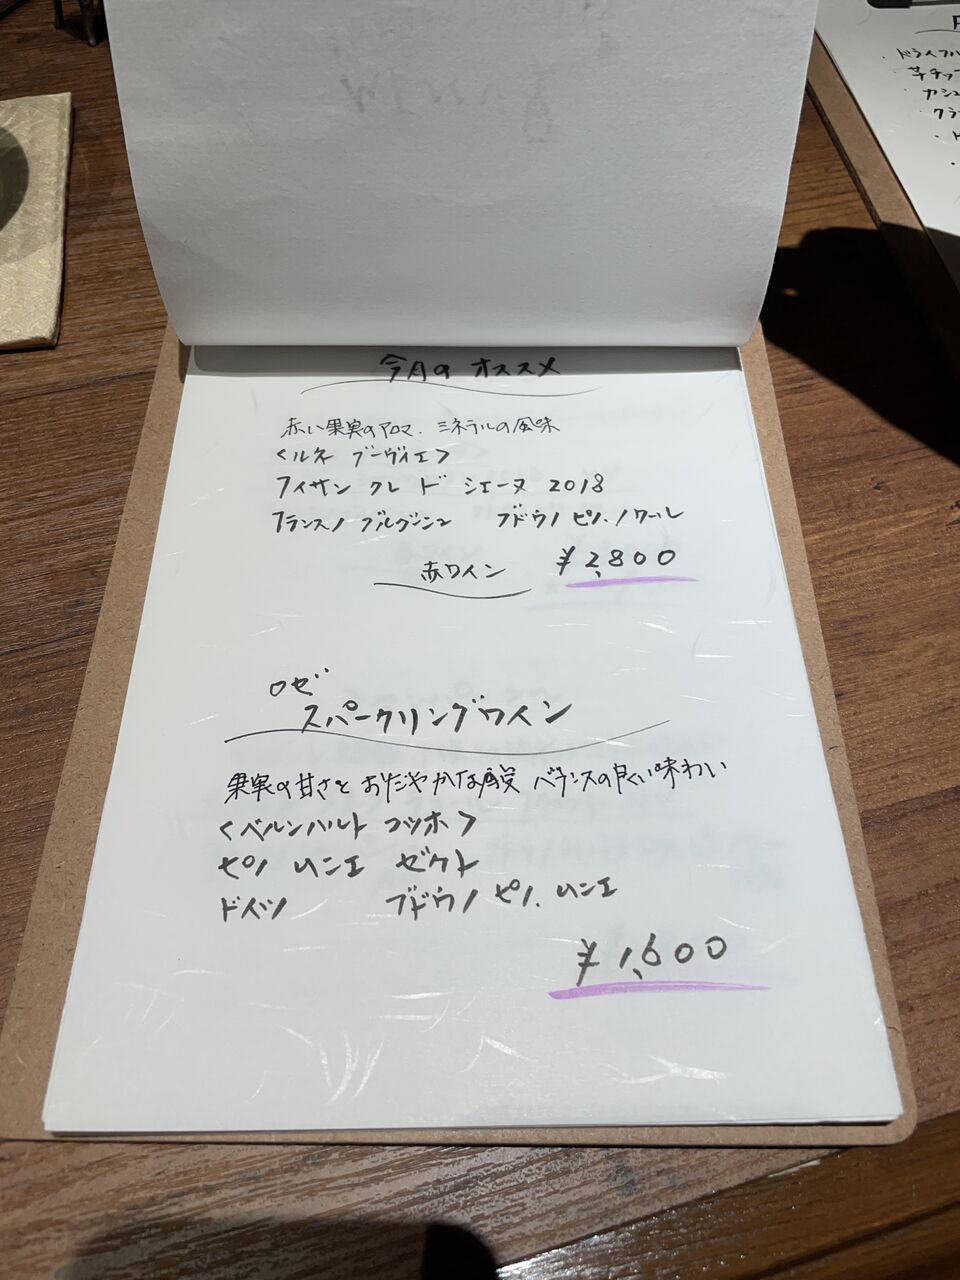 今月のオススメ
赤い果実のアロマ、ミネラルの風味
<ルネ ブーヴィエ>
フィサン クレ ド シェーヌ 2018
フランス/ブルゴーニュ ブドウ/ピノ・ノワール
赤ワイン ¥2,800
ロゼ
スパークリングワイン
果実の甘さと おだやかな酸 バランスの良い味わい
<ベルンハルト コッホ>
ピノ ムニエ ゼクト
ドイツ ブドウ/ピノ・ムニエ
¥1,600
ドライフル
芋チップ
カシュ
クラ